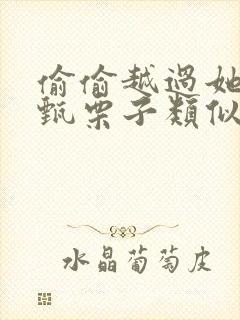 偷偷越過她
甄栗子類似
水晶葡萄皮